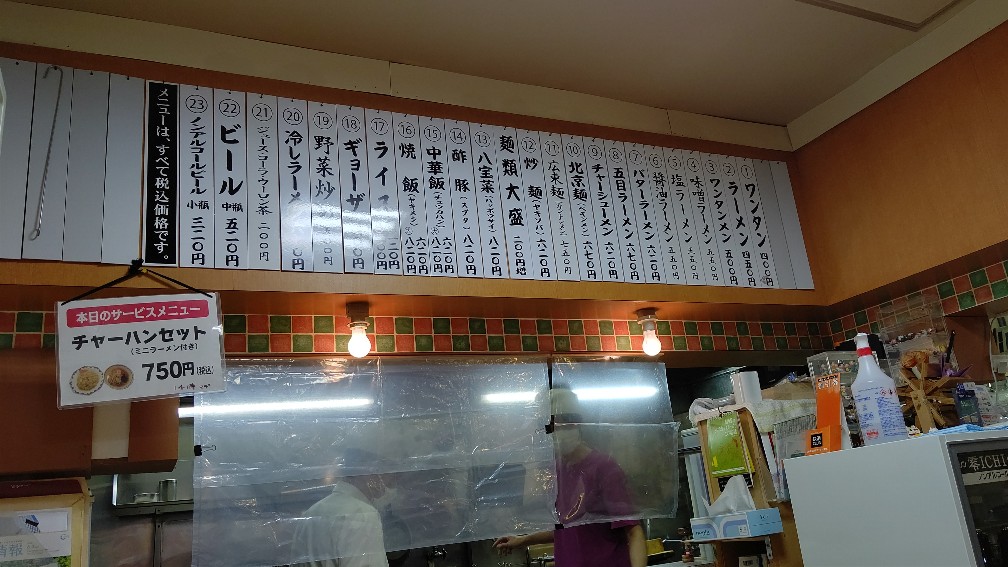 ① ワンタン 四〇〇円
② ラーメン 四五〇円
③ ワンタンメン 五五〇円
④ 味噌ラーメン 五五〇円
⑤ 塩ラーメン 五五〇円
⑥ 醤油ラーメン 五五〇円
⑦ バターラーメン 六二〇円
⑧ 五目ラーメン 六七〇円
⑨ チャーシューメン 六二〇円
⑩ 北京麺 六七〇円
⑪ 広東麺 七五〇円
⑫ 炒麺(ヤキソバ) 六二〇円
麺類大盛 二〇〇円増
⑬ 八宝菜(ハッポウサイ) 八二〇円
⑭ 酢豚(スブタ) 八二〇円
⑮ 中華飯(チュウカハン) 八二〇円
⑯ 焼飯(ヤキメシ) 六二〇円
⑰ ライス
⑱ ギョーザ
⑲ 野菜炒
⑳ 冷しラーメン
㉑ ジュース・コーラ・ウーロン茶 二〇〇円
㉒ ビール 中瓶 五二〇円
㉓ ノンアルコールビール 小瓶 三二〇円
メニューは、すべて税込価格です。
本日のサービスメニュー
チャーハンセット
(ミニラーメン付き)
750円(税込)